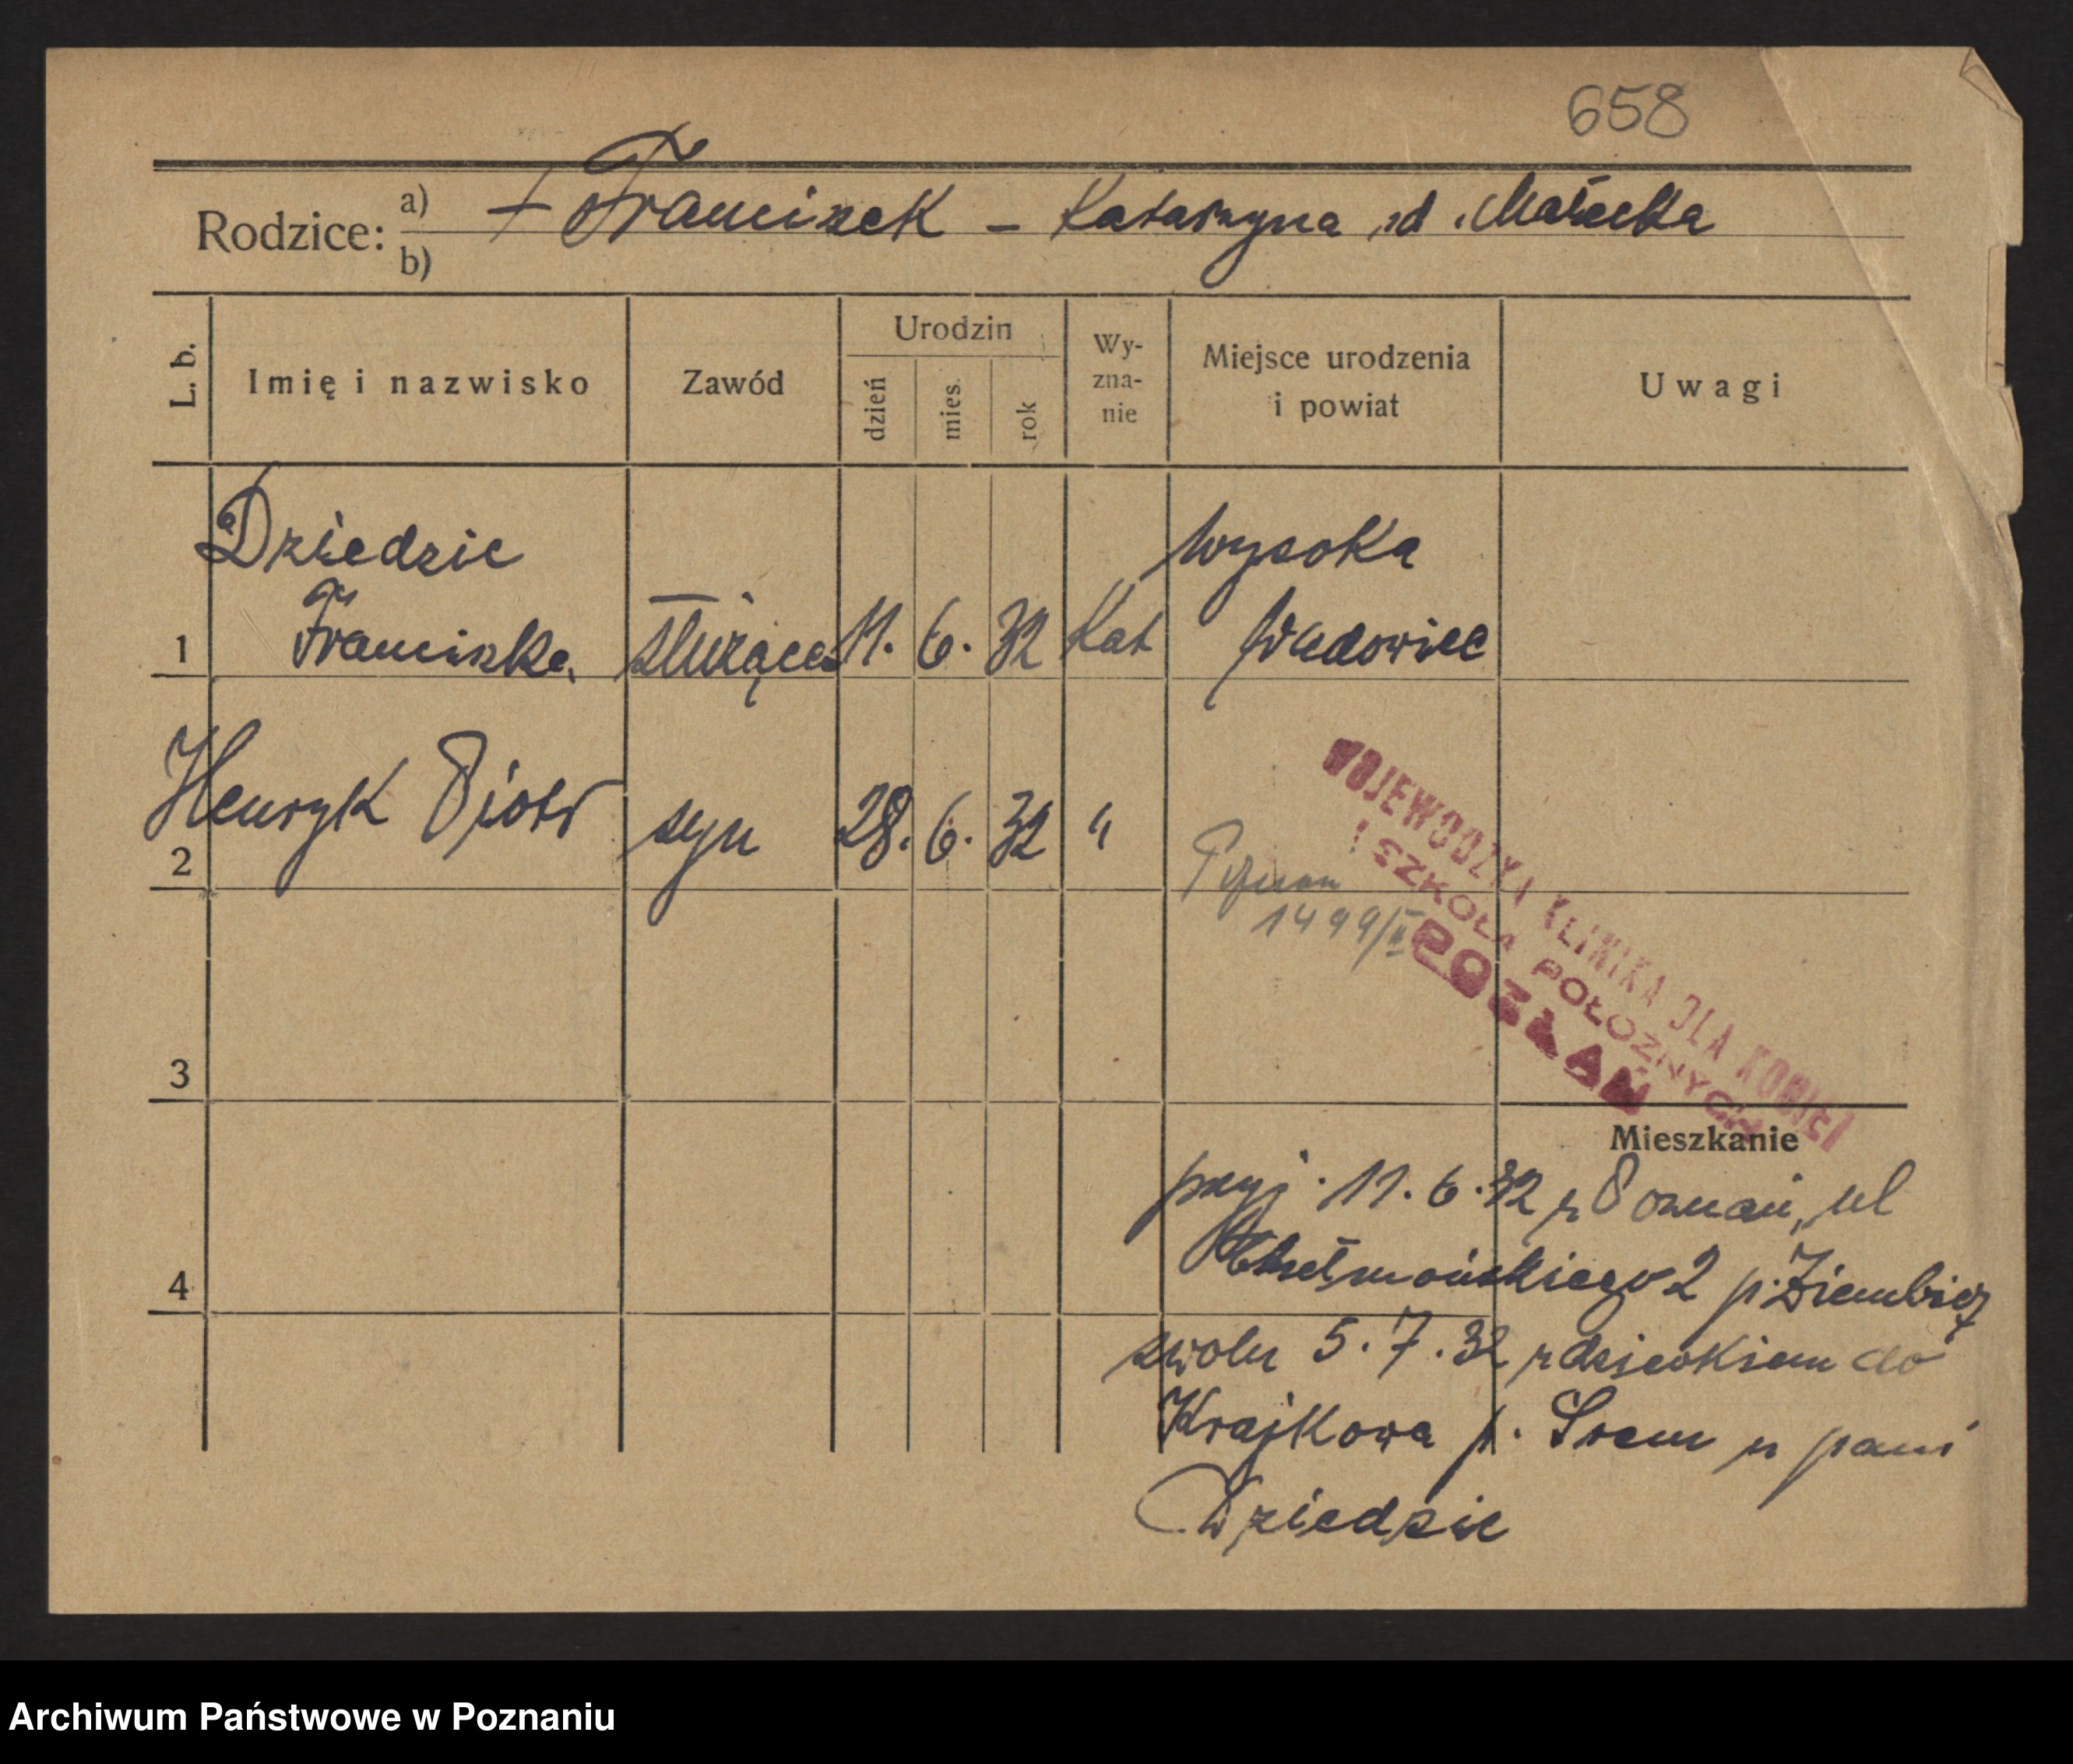 658
Rodzice: a) + Franciszek – Katarzyna z d. Małecka
b)
L. b. Imię i nazwisko Zawód Urodzin dzień mies. rok Wy-zna-nie Miejsce urodzenia i powiat Uwagi
Dziedzic Wysoka
1 Franciszka służąca 11. 6. 32 Kat Wadowice
2 Henryk Piotr syn 28. 6. 32 "
1499/II
WOJEWÓDZKA KLINIKA DLA KOBIET
I SZKOŁA POŁOŻNYCH
POZNAŃ
3
Mieszkanie
przyj. 11. 6. 32 z Poznań, ul
4 Chełmońskiego 2 p. Ziembicz
zwoln 5. 7. 32 z dzieckiem do
Krajkowa p. Srem u pani
Dziedzic
Archiwum Państwowe w Poznaniu